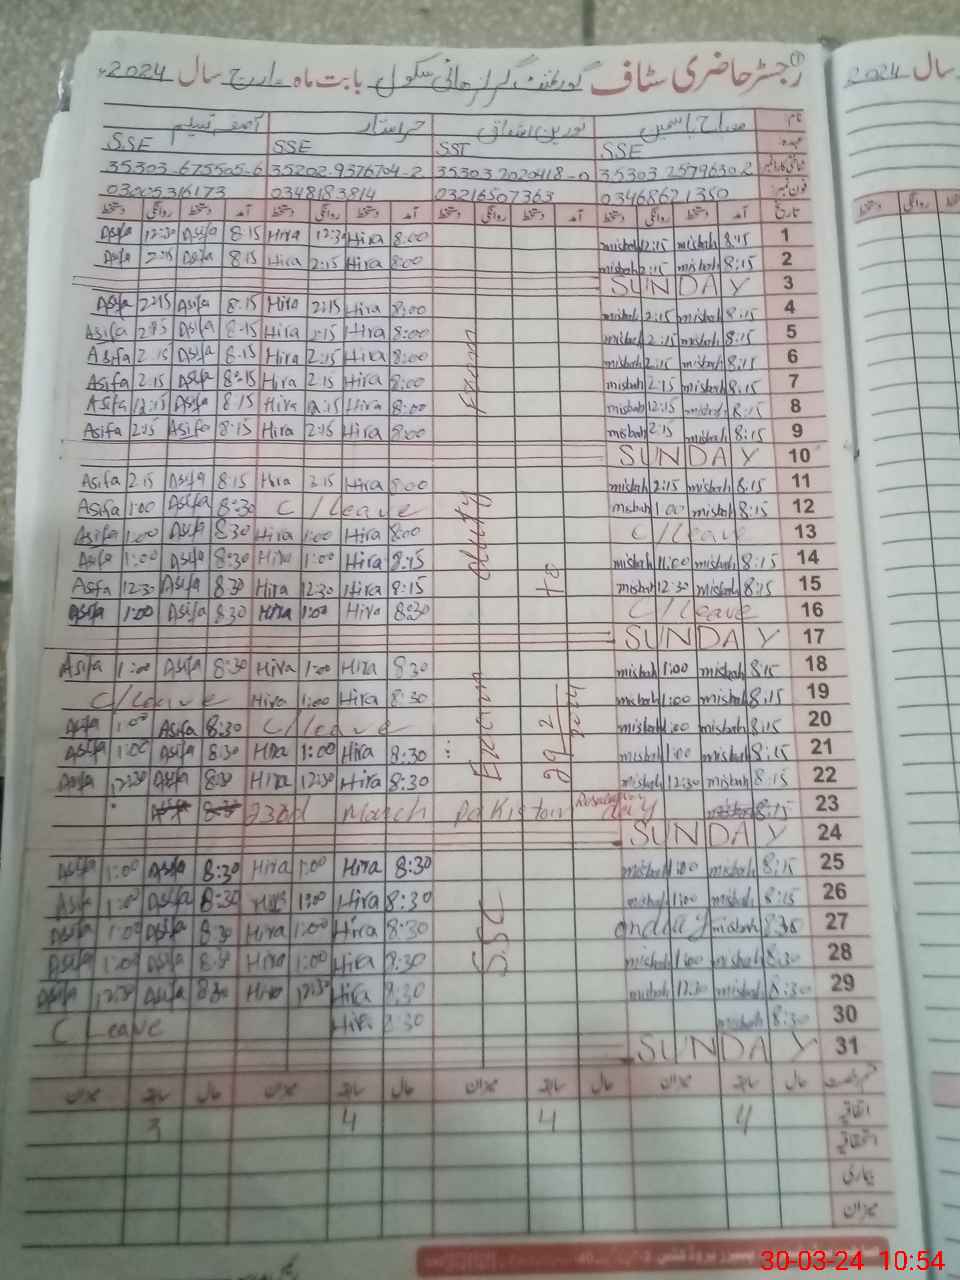 رجسٹر حاضری سٹاف گورنمنٹ گرلز ہائی سکول بابت ماہ مارچ سال 2024ء
سال 2024
نام مصباح یاسمین نورین اشفاق حرا ستار آصفہ تسلیم
عہدہ SSE SST SSE SSE
35303-675505-6 35202-9376704-2 35303 2020418-0 35303 2579630 2
فون نمبر 03005316173 0348183814 03216507363 03468621350
تاریخ آمد دستخط روانگی دستخط آمد دستخط روانگی دستخط آمد دستخط روانگی دستخط آمد دستخط روانگی دستخط
Asifa 12:30 Asifa 8:15 Hira 12:30 Hira 8:00 misbah 12:15 misbah 8:15 1
Asifa 2:15 Asifa 8:15 Hira 2:15 Hira 8:00 misbah 2:15 misbah 8:15 2
SUNDAY 3
Asifa 2:15 Asifa 8:15 Hira 2:15 Hira 8:00 misbah 2:15 misbah 8:15 4
Asifa 2:15 Asifa 8:15 Hira 2:15 Hira 8:00 misbah 2:15 misbah 8:15 5
Asifa 2:15 Asifa 8:15 Hira 2:15 Hira 8:00 misbah 2:15 misbah 8:15 6
Asifa 2:15 Asifa 8:15 Hira 2:15 Hira 8:00 misbah 2:15 misbah 8:15 7
Asifa 12:15 Asifa 8:15 Hira 12:15 Hira 8:00 misbah 12:15 misbah 8:15 8
Asifa 2:15 Asifa 8:15 Hira 2:15 Hira 8:00 misbah 2:15 misbah 8:15 9
SUNDAY 10
Asifa 2:15 Asifa 8:15 Hira 2:15 Hira 8:00 misbah 2:15 misbah 8:15 11
Asifa 1:00 Asifa 8:30 C/leave misbah 1:00 misbah 8:15 12
Asifa 1:00 Asifa 8:30 Hira 1:00 Hira 8:00 C/leave 13
Asifa 1:00 Asifa 8:30 Hira 1:00 Hira 8:15 misbah 1:00 misbah 8:15 14
Asifa 12:30 Asifa 8:30 Hira 12:30 Hira 8:15 misbah 12:30 misbah 8:15 15
Asifa 1:00 Asifa 8:30 Hira 1:00 Hira 8:30 C/leave 16
SUNDAY 17
Asifa 1:00 Asifa 8:30 Hira 1:00 Hira 8:30 misbah 1:00 misbah 8:15 18
C/leave Hira 1:00 Hira 8:30 misbah 1:00 misbah 8:15 19
Asifa 1:00 Asifa 8:30 C/leave misbah 1:00 misbah 8:15 20
Asifa 1:00 Asifa 8:30 Hira 1:00 Hira 8:30 misbah 1:00 misbah 8:15 21
Asifa 12:30 Asifa 8:30 Hira 12:30 Hira 8:30 misbah 12:30 misbah 8:15 22
23rd March Pakistan Resolution day 8:15 23
SUNDAY 24
Asifa 1:00 Asifa 8:30 Hira 1:00 Hira 8:30 misbah 1:00 misbah 8:15 25
Asifa 1:00 Asifa 8:30 Hira 1:00 Hira 8:30 misbah 1:00 misbah 8:15 26
Asifa 1:00 Asifa 8:30 Hira 1:00 Hira 8:30 misbah 8:30 27
Asifa 1:00 Asifa 8:30 Hira 1:00 Hira 8:30 misbah 1:00 misbah 8:30 28
Asifa 12:30 Asifa 8:30 Hira 12:30 Hira 8:30 misbah 12:30 misbah 8:30 29
C Leave Hira 8:30 misbah 8:30 30
SUNDAY 31
SSC Exam duty Exam
29 2/2024 to
حال سابقہ میزان حال سابقہ میزان حال سابقہ میزان حال سابقہ میزان
اتفاقیہ 4 4 4 3
استحقاقیہ
بیماری
میزان
30-03-24 10:54